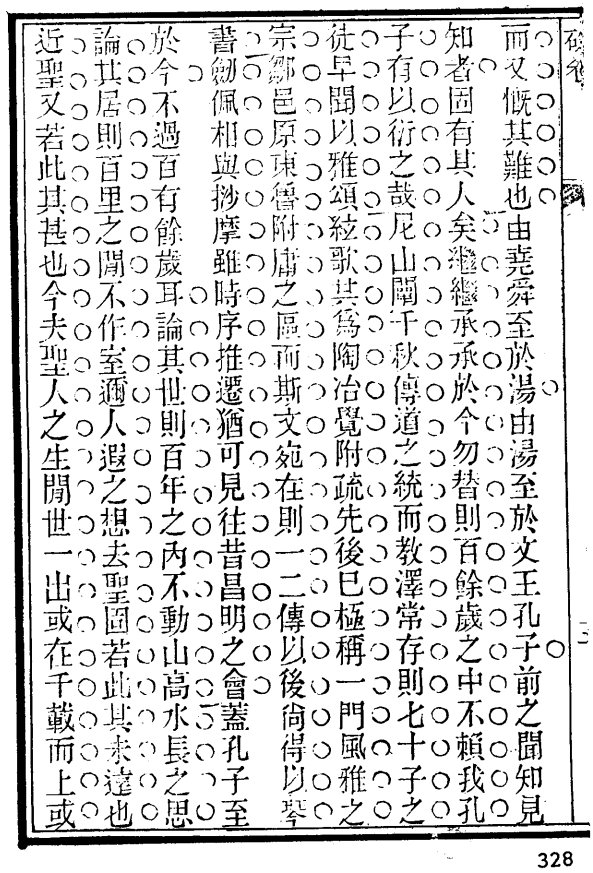 硃卷
而又慨其難也由堯舜至於湯由湯至於文王孔子前之聞知見
知者固有其人矣繼繼承承於今勿替則百餘歲之中不賴我孔
子有以衍之哉尼山闡千秋傳道之統而教澤常存則七十子之
徒早聞以雅頌絃歌其爲陶冶覺附疏先後已極稱一門風雅之
宗鄒邑原東魯附庸之區而斯文宛在則一二傳以後尙得以琴
書劒佩相與摉摩雖時序推遷猶可見往昔昌明之會蓋孔子至
於今不過百有餘歲耳論其世則百年之內不動山高水長之思
論其居則百里之閒不作室邇人遐之想去聖固若此其未遠也
近聖又若此其甚也今夫聖人之生閒世一出或在千載而上或
328